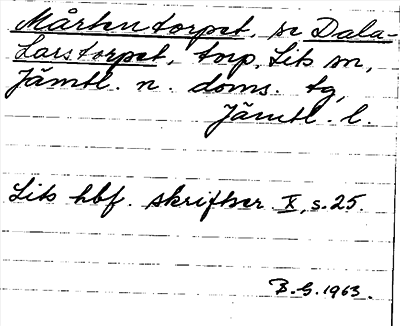 Mårtentorpet, se Dala-
Larstorpet, torp, Lits sn,
Jämtl. n. doms. tg,
Jämtl. l.
Lits hbf. skrifter X, s. 25.
B.G. 1963.